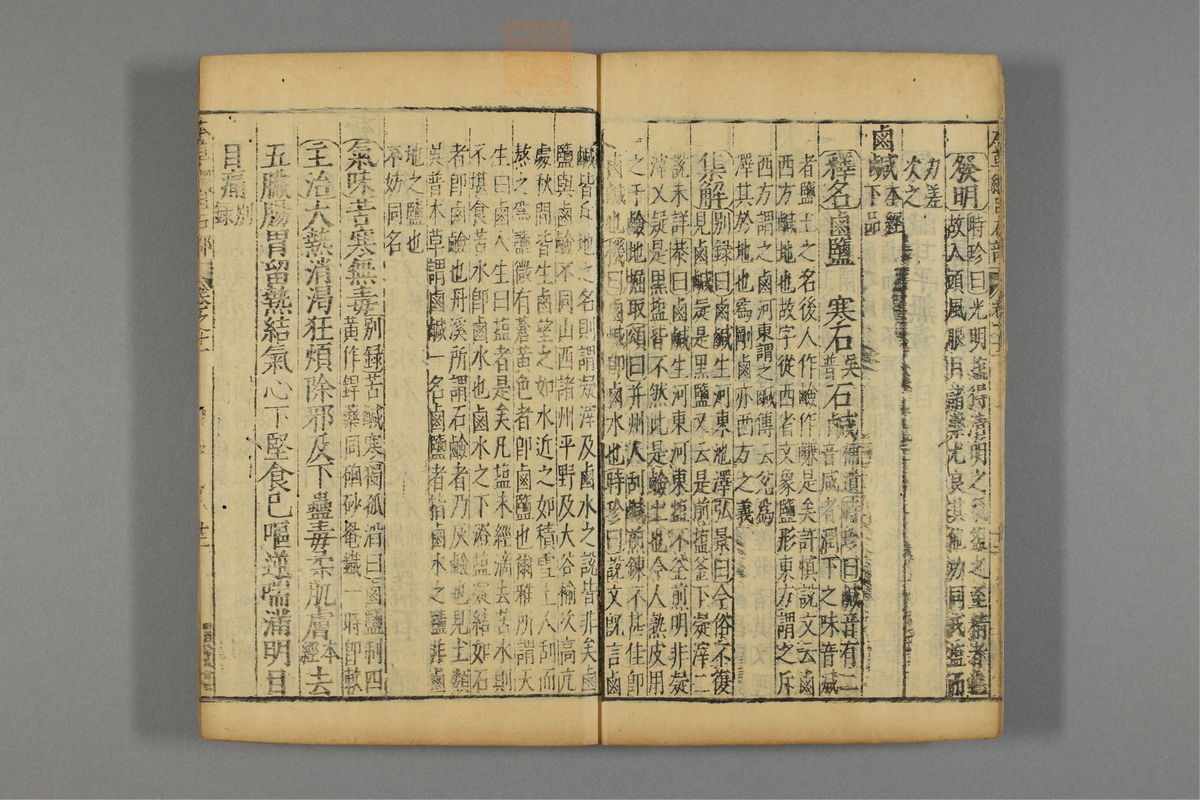 發明時珍曰光明鹽得清明之氣鹽之至精者也
故入頭風眼目諸藥尤良其他功同戎鹽而
力差
次之
鹵鹹本經下品
釋名鹵鹽 寒石吳普石鹹補遺時珍曰鹹音有二
音咸者潤下之味音減
者鹽土之名後人作鹼作鹻是矣許慎說文云鹵
西方鹹地也故字從西省文象鹽形東方謂之斥
西方謂之鹵河東謂之鹹傳云兌為
澤其於地也為剛鹵亦西方之義
集解別録曰鹵鹹生河東池澤弘景曰今俗不復
見鹵鹹疑是黑鹽又云是煎鹽釜下凝滓二
說未詳恭曰鹵鹹生河東河東鹽不釜煎明非凝
滓又疑是黑鹽皆不然此是鹼土也今人熟皮用
之于鹼地掘取頌曰并州人刮鹹煎鍊不甚佳即
鹵鹹也機曰鹵鹹即鹵水也時珍曰說文旣言鹵
鹹皆斥地之名則謂凝滓及鹵水之說皆非矣鹵
鹽與鹵鹼不同山西諸州平野及大谷榆次高亢
處秋間皆生鹵望之如水近之如積雪土人刮而
熬之爲鹽微有蒼黃色者卽鹵鹽也爾雅所謂天
生曰鹵人生曰鹽者是矣凡鹽未經滴去苦水則
不堪食苦水卽鹵水也鹵水之下澄鹽凝結如石
者卽鹵鹼也丹溪所謂石鹼者乃灰鹼也見土類
吳普本草謂鹵鹹一名鹵鹽者指鹵水之鹽非鹵
地之鹽也
不妨同名
氣味苦寒無毒別録苦鹹寒獨孤滔曰鹵鹽制四
黃作銲藥同硇砂䇄鐵一時即軟
主治大熱消渴狂煩除邪及下蠱毒柔肌膚本經去
五臟腸胃留熱結氣心下堅食已嘔逆喘滿明目
目痛別録